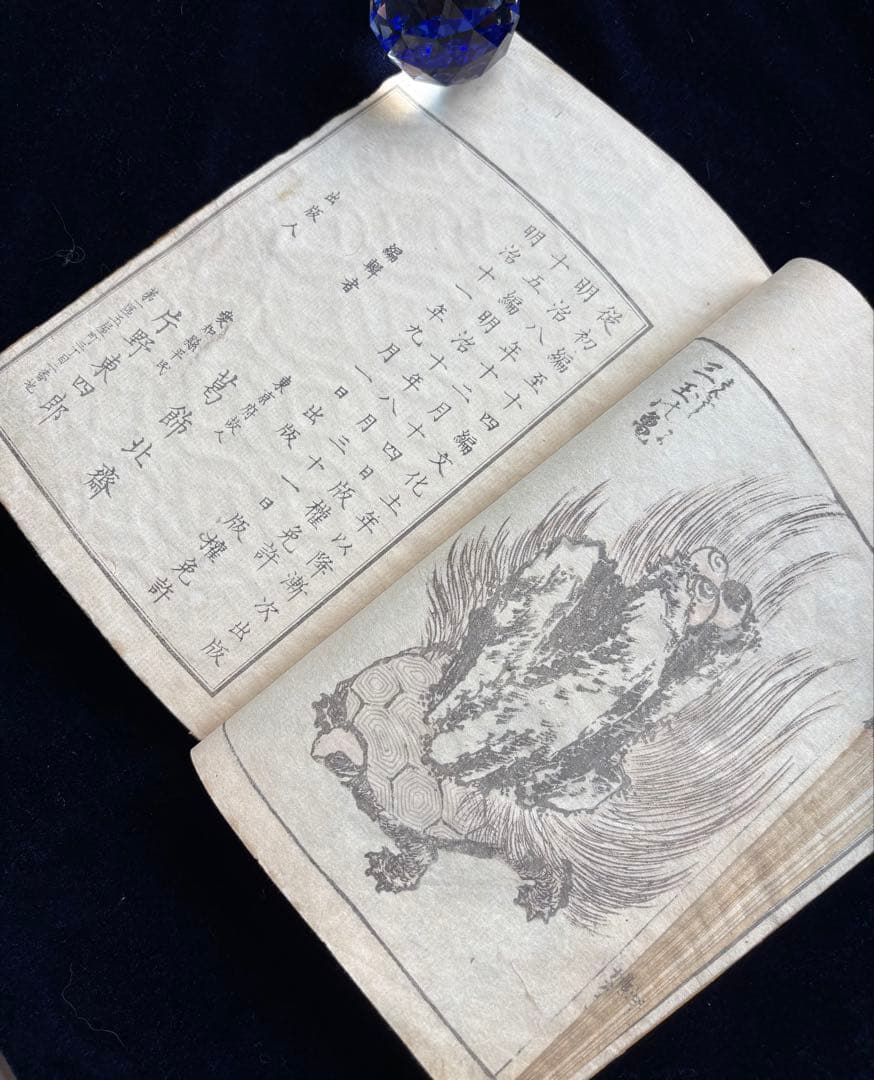 從初編至十四編文化十一年以降漸次出版
明治八年十二月十四日版權免許
十五編明治十年八月三十一日版權免許
明治十一年九月一日出版
編輯者
東京府故人
葛飾北齋
出版人
愛知縣平民
片野東四郎
三玉の亀